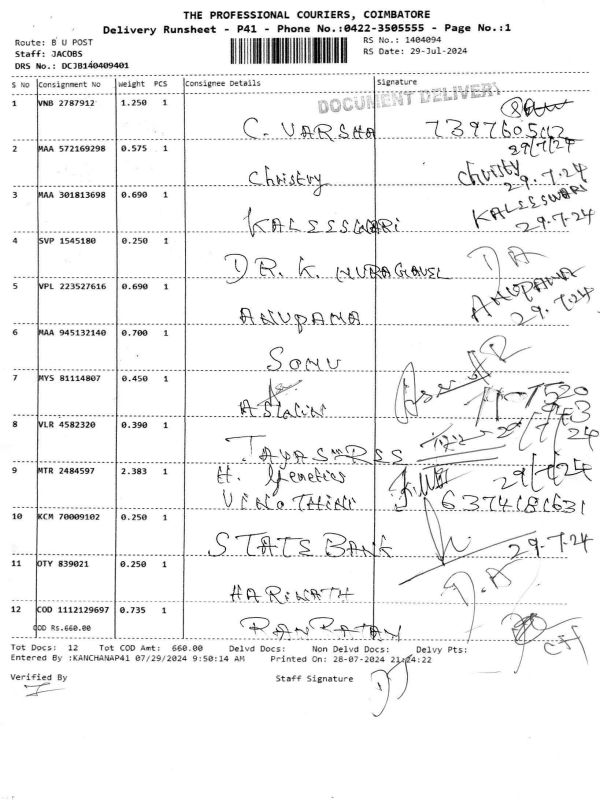 THE PROFESSIONAL COURIERS, COIMBATORE
Delivery Runsheet - P41 - Phone No.:0422-3505555 - Page No.:1
Route: B U POST
RS No.: 1404094
Staff: JACOBS
RS Date: 29-Jul-2024
DRS No.: DCJB140409401
S No Consignment No Weight PCS Consignee Details Signature
DOCUMENT DELIVERY
1 VNB 2787912 1.250 1
C. VARSHA
29/7/24
2 MAA 572169298 0.575 1
Christy christy
29.7.24
3 MAA 301813698 0.690 1
KALEESWARI KALEESWARI
29.7.24
4 SVP 1545180 0.250 1
DR. K. D.A
5 VPL 223527616 0.690 1
ANUPAMA ANUPAMA
29.7.24
6 MAA 945132140 0.700 1
SONU
7 MYS 81114807 0.450 1
A Stalin
8 VLR 4582320 0.390 1
29/7/24
9 MTR 2484597 2.383 1
H. Genetics 29/7/24
VINOTHINI
10 KCM 70009102 0.250 1
STATE BANK 29.7.24
11 OTY 839021 0.250 1
HARINATH D.A
12 COD 1112129697 0.735 1
COD Rs.660.00
Tot Docs: 12 Tot COD Amt: 660.00 Delvd Docs: Non Delvd Docs: Delvy Pts:
Entered By :KANCHANAP41 07/29/2024 9:50:14 AM Printed On: 28-07-2024 21:24:22
Verified By Staff Signature